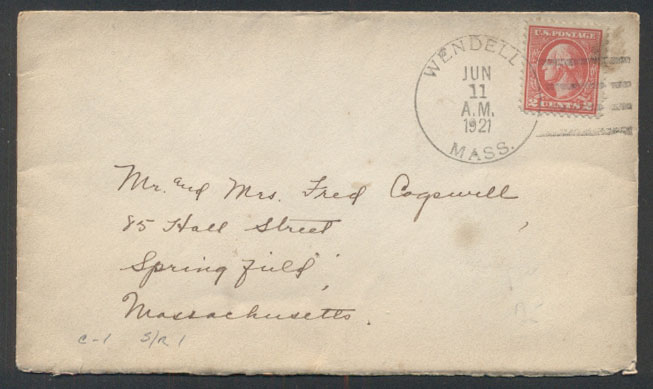 WENDELL
JUN
11
A.M.
1921
MASS.
U.S. POSTAGE
2 CENTS 2
Mr. and Mrs. Fred Cogswell
85 Hall Street,
Springfield,
Massachusetts.
C-1 S/R 1